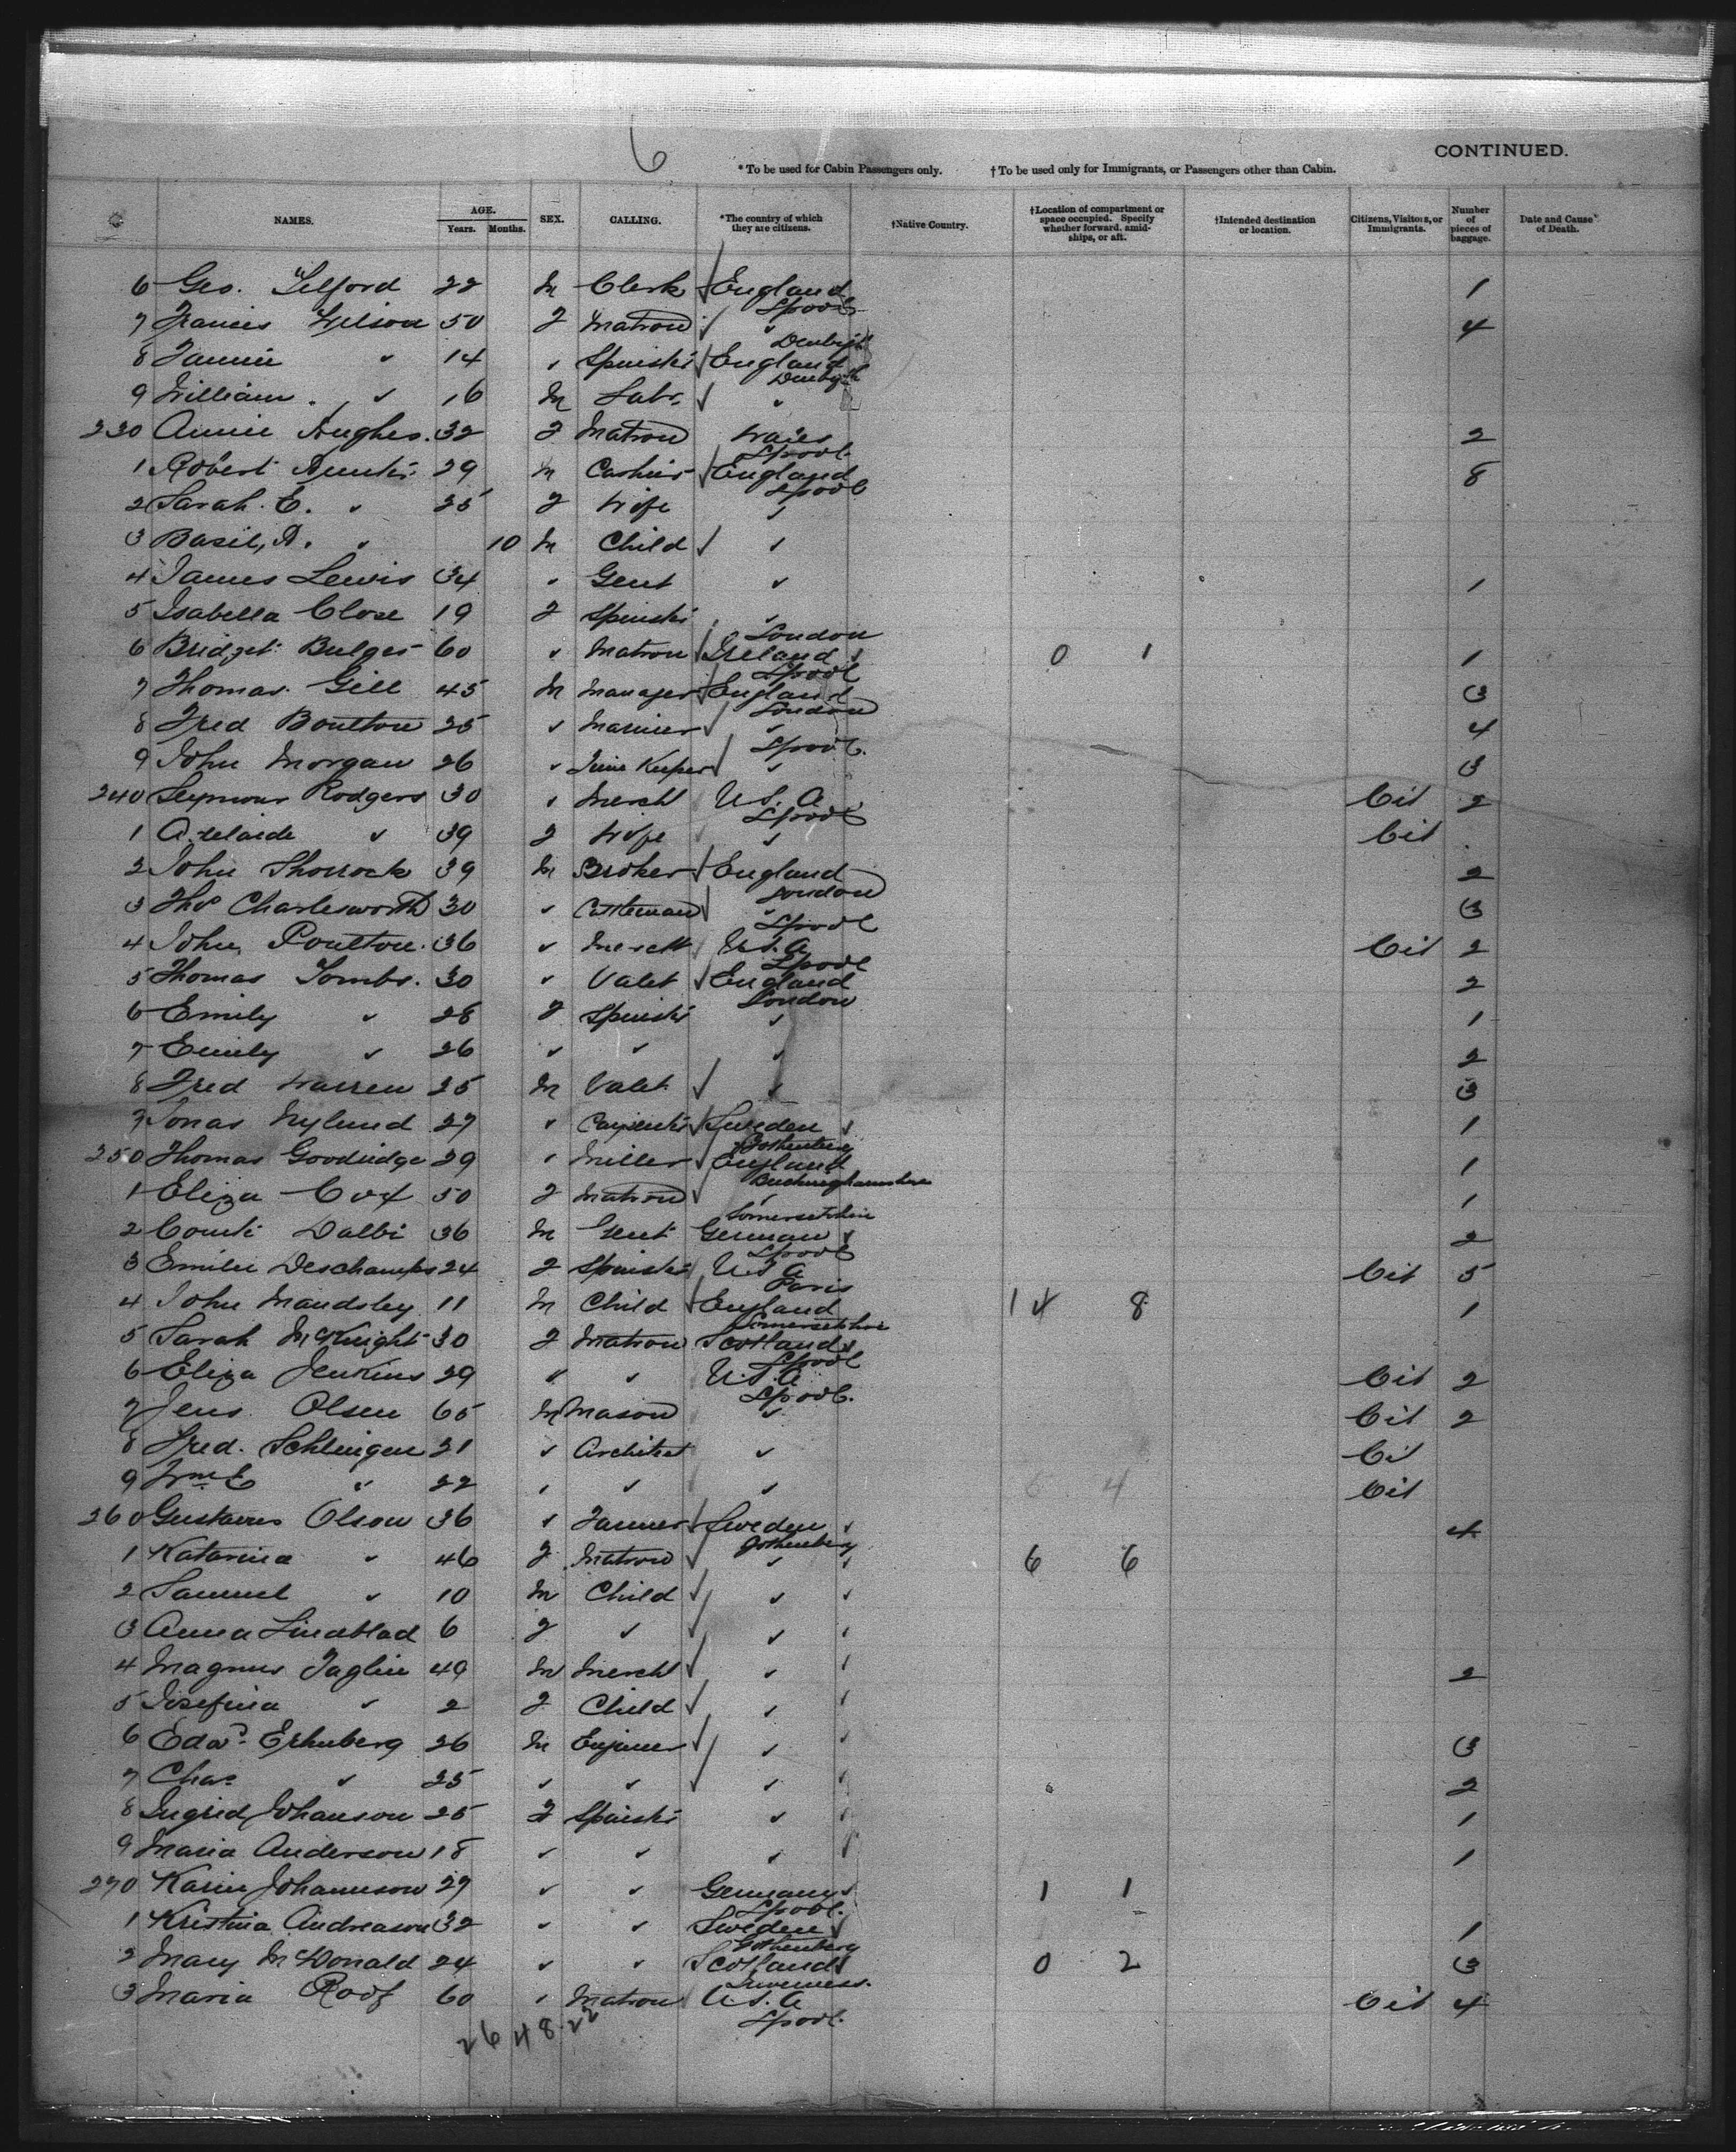 6
CONTINUED.
*To be used for Cabin Passengers only. †To be used only for Immigrants, or Passengers other than Cabin.
NAMES. AGE. Years. Months. SEX. CALLING. *The country of which they are citizens. †Native Country. †Location of compartment or space occupied. Specify whether forward, amidships, or aft. †Intended destination or location. Citizens, Visitors, or Immigrants. Number of pieces of baggage. Date and Cause of Death.
6 Geo. Telford 22 M Clerk England 1
Lpool
7 Frances Wilson 50 F Matron " 4
Denbigh
8 Fannie " 14 " Spinster England
Denbigh
9 William " 16 M Labr. "
230 Annie Hughes. 32 F Matron Wales 2
Lpool
1 Robert Hunter 29 M Cashier England 8
Lpool
2 Sarah E. " 25 F Wife "
3 Basil, A. " 10 M Child "
4 James Lewis 34 " Gent " 1
5 Isabella Close 19 F Spinster "
London
6 Bridget Bulger 60 " Matron Ireland 0 1 1
Lpool
7 Thomas Gill 45 M Manager England 3
London
8 Fred Boulton 25 " Mariner " 4
Lpool.
9 John Morgan 26 " Inn Keeper " 3
240 Seymour Rodgers 30 " Mercht U.S.A. Cit 2
Lpool
1 Adelaide " 39 F Wife " Cit
2 John Shorrock 39 M Broker England 2
London
3 Thos Charlesworth 30 " Cattleman " 3
Lpool
4 John Poulton. 36 " Mercht U.S.A Cit 2
Lpool
5 Thomas Tombs. 30 " Valet England 2
London
6 Emily " 28 F Spinster " 1
7 Emily " 26 " " " 2
8 Fred Warren 25 M Valet " 3
9 Jonas Nylund 27 " Carpenter Sweden 1
Gothenberg
250 Thomas Goodridge 29 " Miller England 1
Buckinghamshire
1 Eliza Cox 50 F Matron " 1
Somersetshire
2 Comte Dalbi 36 M Gent German 2
Lpool
3 Emilie Deschamps 24 F Spinster U.S.A Cit 5
Paris
4 John Mandsley 11 M Child England 14 8 1
Somersetshire
5 Sarah McKnight 30 F Matron Scotland
Lpool
6 Eliza Jenkins 29 " " U.S.A Cit 2
Lpool.
7 Jens Olsen 65 M Mason " Cit 2
8 Fred. Schlingen 21 " Architect " Cit
9 Wm E " 22 " " " 6 4 Cit
260 Gustavus Olson 36 " Farmer Sweden 4
Gothenberg
1 Katarina " 46 F Matron " 6 6
2 Samuel " 10 M Child "
3 Anna Lindblad 6 F " "
4 Magnus Taglin 49 M Mercht " 2
5 Josefina " 2 F Child "
6 Edwd. Ekenberg 26 M Engineer " 3
7 Chas " 25 " " " 2
8 Ingrid Johanson 25 F Spinster " 1
9 Maria Anderson 18 " " " 1
270 Karin Johannson 27 " " Germany 1 1
Lpool.
1 Kristina Andreason 32 " " Sweden 1
Gothenberg
2 Mary McDonald 24 " " Scotland 0 2 3
Inverness.
3 Maria Roof 60 " Matron U.S.A Cit 4
Lpool.
26 48-22